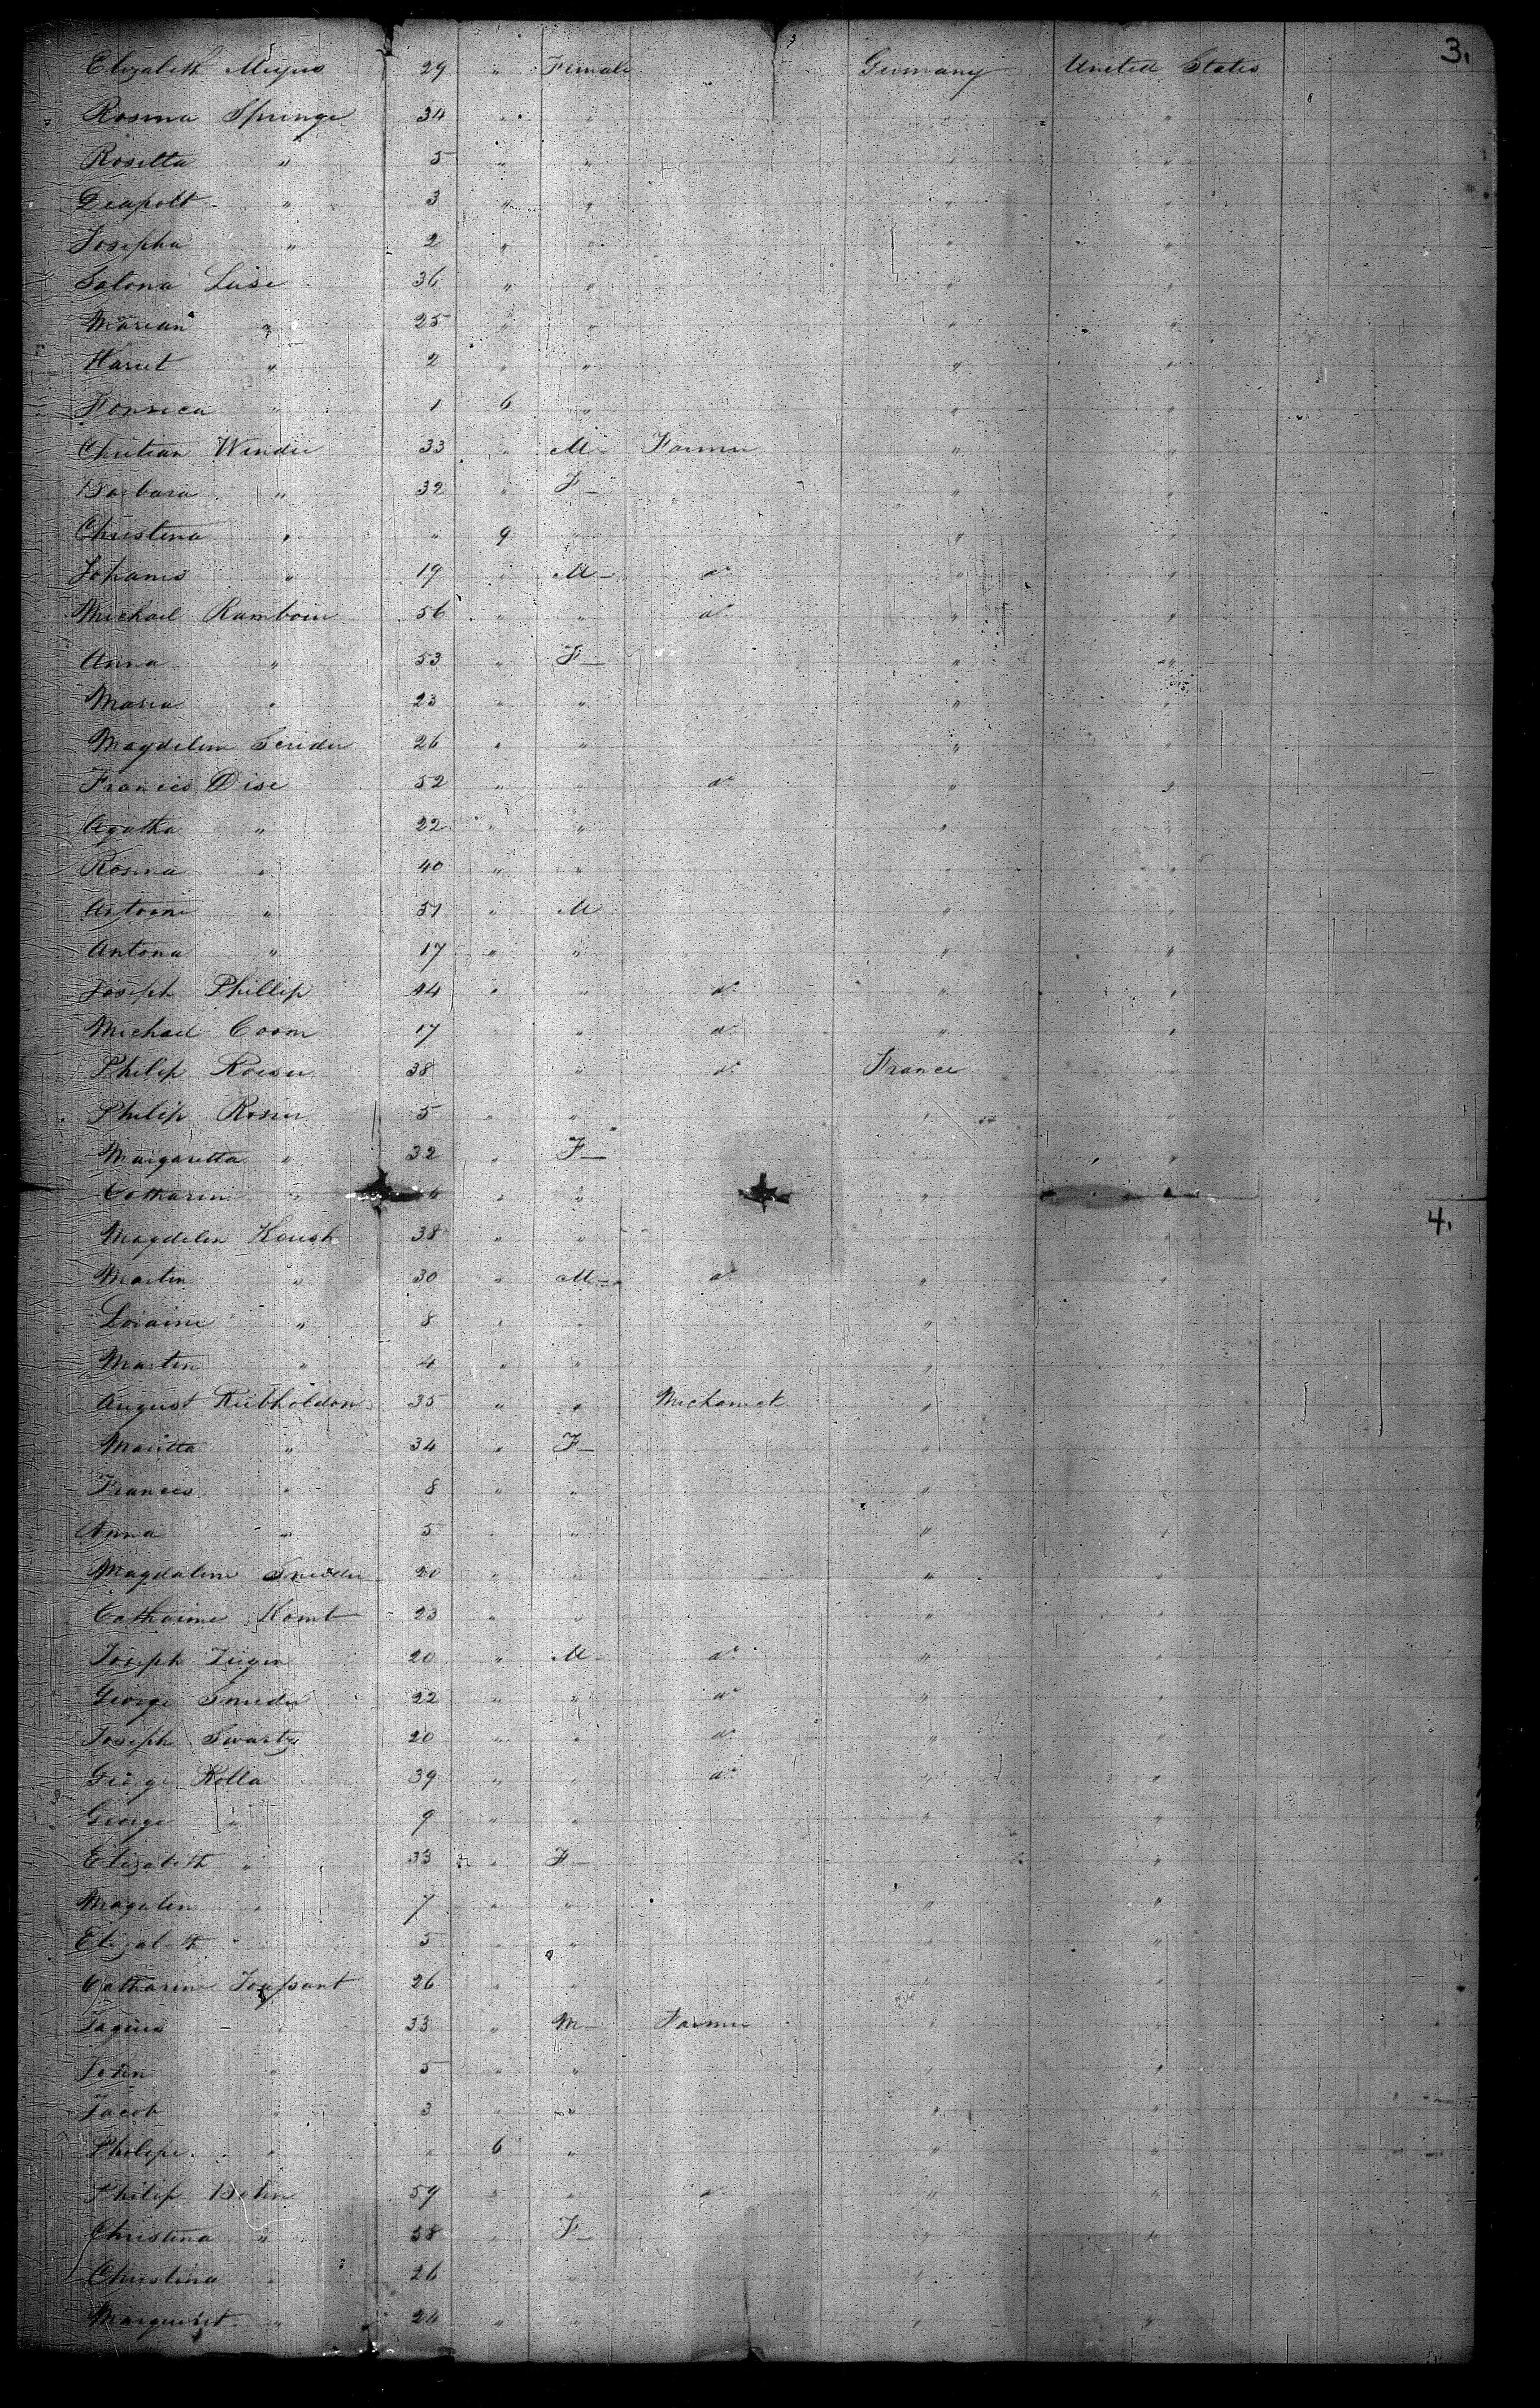 3.
Elizabeth Meyers 29 " Female Germany United States
Rosina Springe 34 " " " "
Rosetta " 5 " " " "
Deapolt " 3 " " " "
Josepha " 2 " " " "
Salona Luise 36 " " " "
Marian " 25 " " " "
Hariet " 2 " " " "
Fonsica " 1 6 " " "
Christian Winder 33 " M Farmer " "
Barbara " 32 " F " "
Christina " " 9 " " "
Johanes " 19 " M do " "
Michael Rambour 56 " " do " "
Anna " 53 " F " "
Maria " 23 " " " "
Magdelin 26 " " " "
Francis Dise 52 " " do " "
Agatha " 22 " " " "
Rosina " 40 " " " "
Antoine " 51 " M " "
Antona " 17 " " " "
Joseph Phillip 44 " " do " "
Michael Coom 17 " " do " "
Philip Rosier 38 " " do France "
Philip Rosier 5 " " " "
Margaretta " 32 " F " "
Catharin " 6 " " " "
4.
Magdelin Koush 38 " " " "
Martin " 30 " M do " "
Loraine " 8 " " " "
Martin " 4 " " " "
August Rubholdon 35 " " Mechanick " "
Maritta " 34 " F " "
Frances " 8 " " " "
Anna " 5 " " " "
Magdaline Sneider 20 " " " "
Catharine Komt 23 " " " "
Joseph Zeigin 20 " M do " "
George Sneider 22 " " do " "
Joseph Swartz 20 " " do " "
George Rolla 39 " " do " "
George " 9 " " " "
Elizabeth " 33 " F " "
Magalin " 7 " " " "
Elizabeth " 5 " " " "
Catharine Toussant 26 " " " "
Jaques " 33 " M Farmer " "
John " 5 " " " "
Jacob " 3 " " " "
Philipe " " 6 " " "
Philip Bolin 59 " " do " "
Christina " 58 " F " "
Christina " 26 " " " "
Marguerit " 24 " " " "